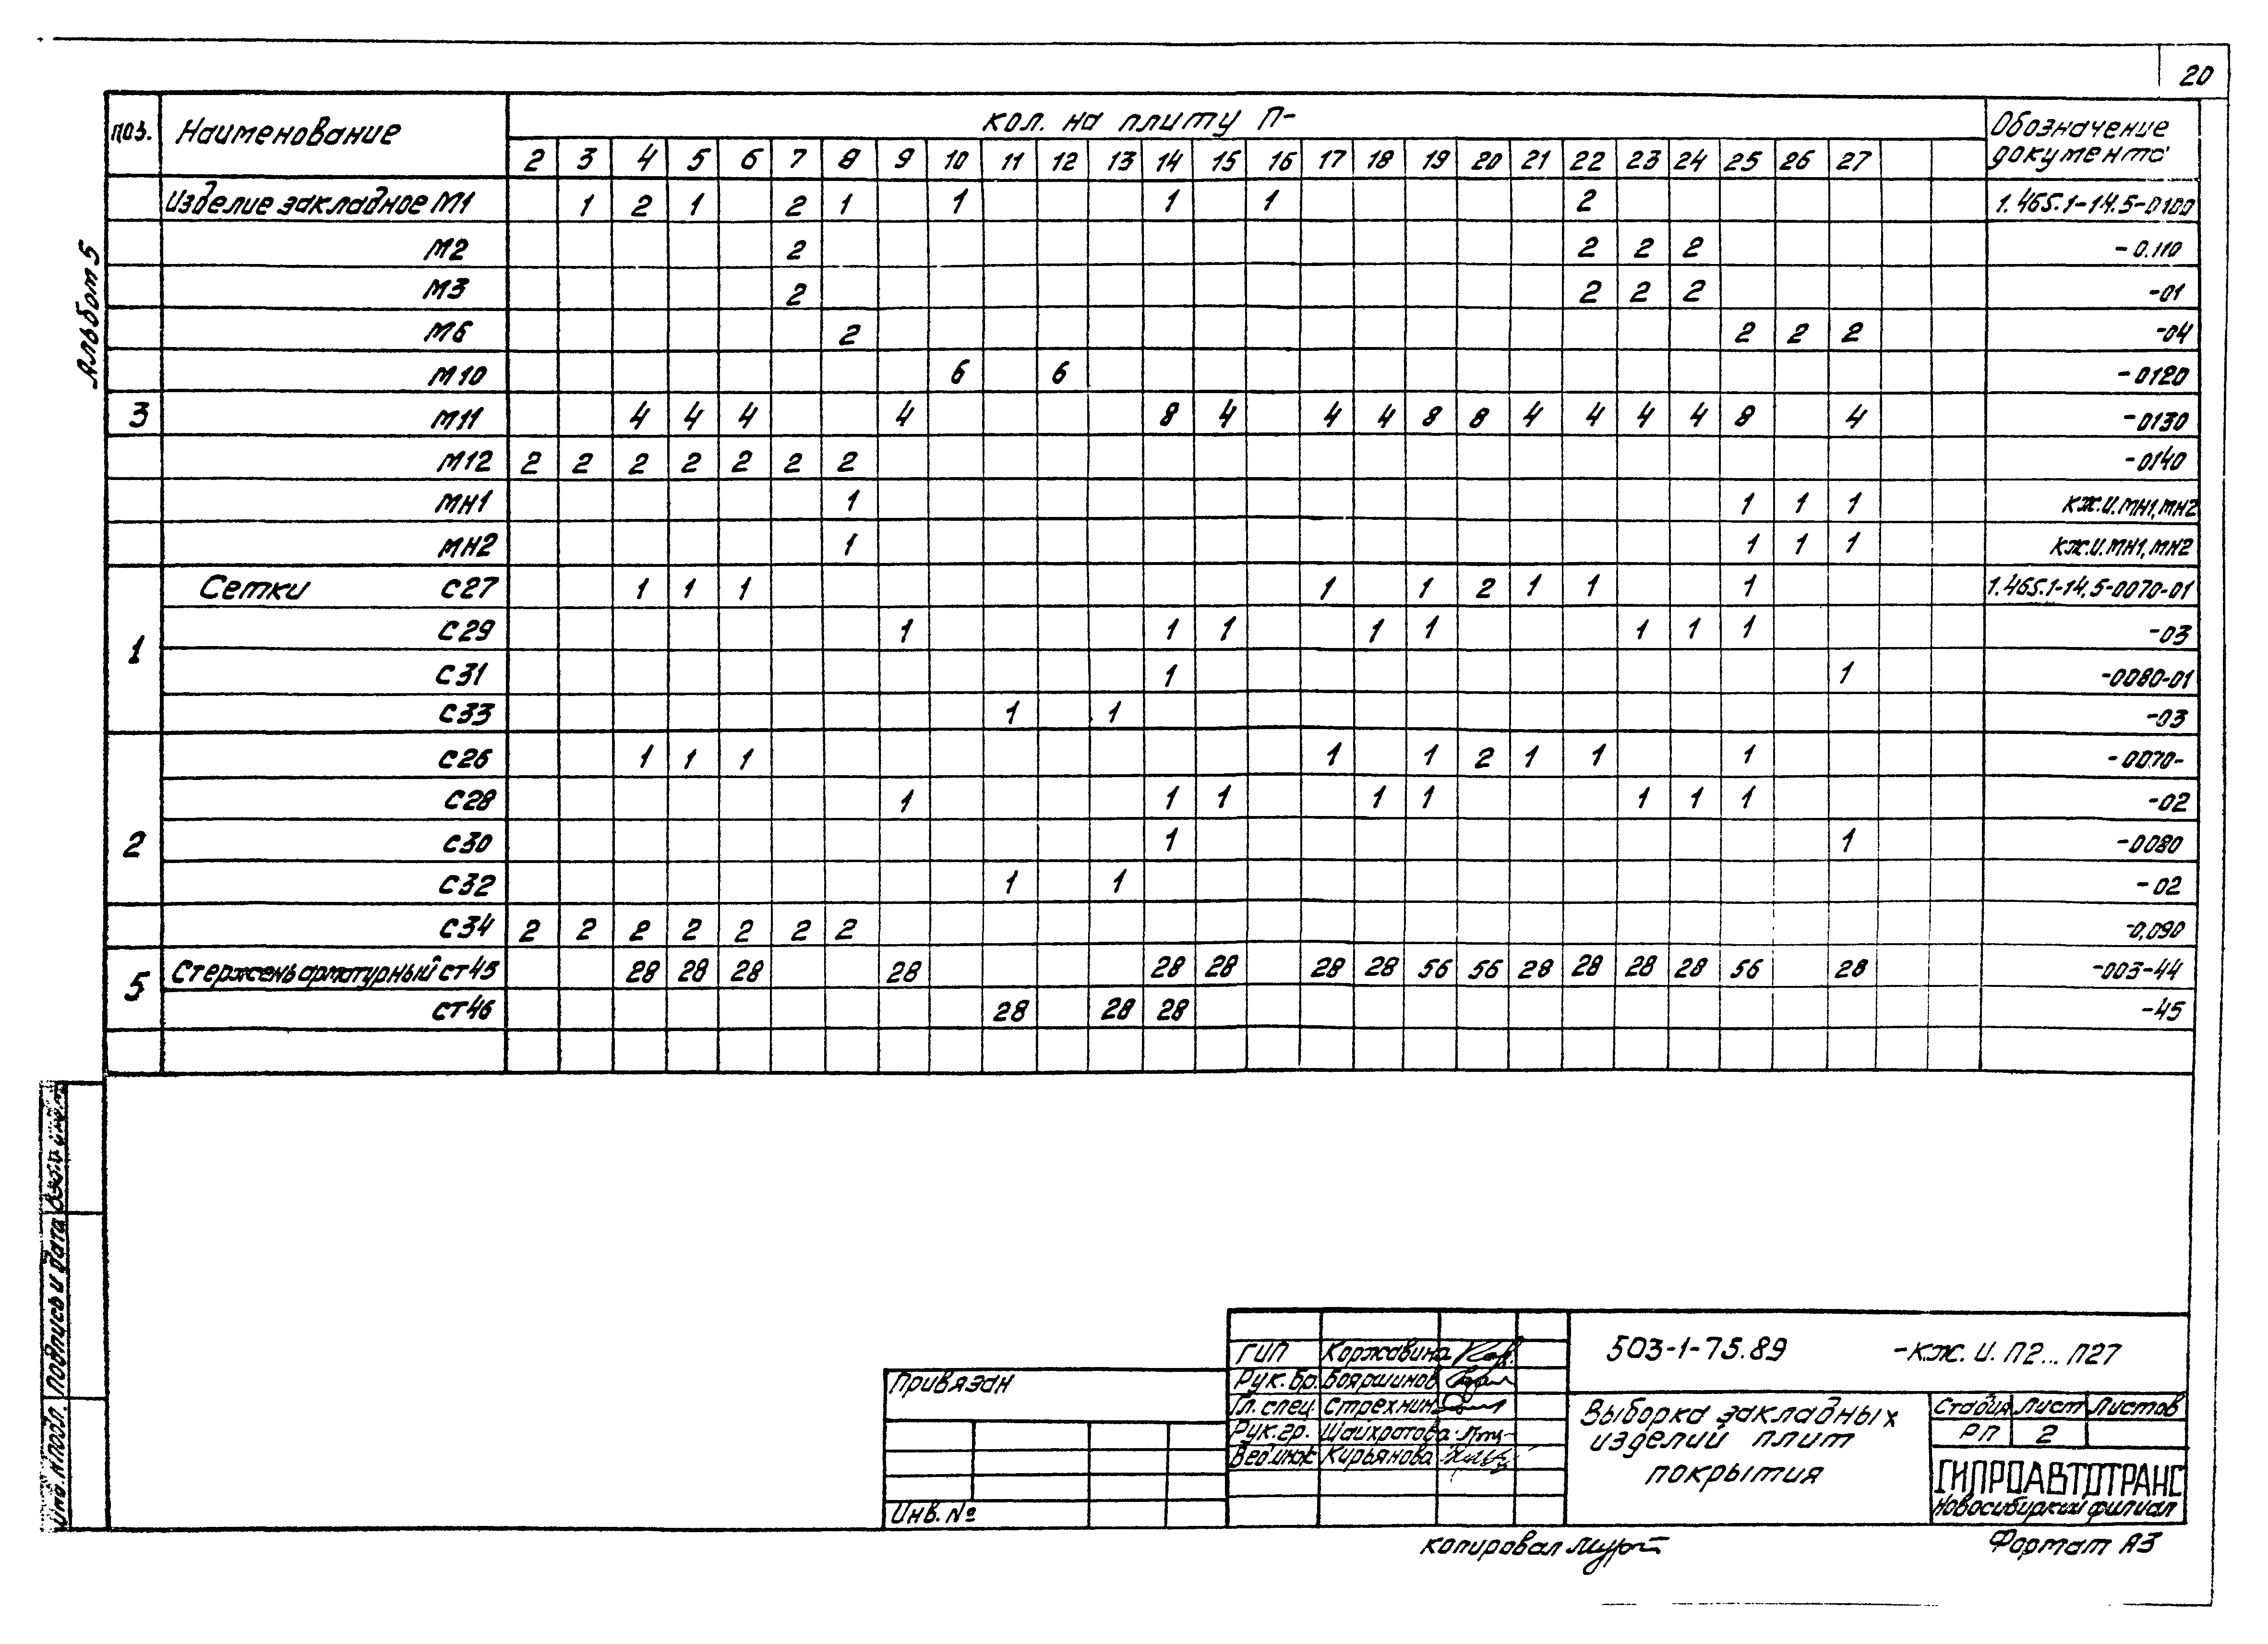 20
Альбом 5
поз. Наименование кол. на плиту П- Обозначение документа
2 3 4 5 6 7 8 9 10 11 12 13 14 15 16 17 18 19 20 21 22 23 24 25 26 27
Изделие закладное М1 1 2 1 2 1 1 1 1 2 1.465.1-14.5-0100
М2 2 2 2 2 -0.110
М3 2 2 2 2 -01
М6 2 2 2 2 -04
М10 6 6 -0120
3 М11 4 4 4 4 8 4 4 4 8 8 4 4 4 4 8 4 -0130
М12 2 2 2 2 2 2 2 -0140
МН1 1 1 1 1 КЖ.И.МН1,МН2
МН2 1 1 1 1 КЖ.И.МН1,МН2
Сетки С27 1 1 1 1 1 2 1 1 1 1.465.1-14.5-0070-01
С29 1 1 1 1 1 1 1 1 -03
1 С31 1 1 -0080-01
С33 1 1 -03
С26 1 1 1 1 1 2 1 1 1 -0070-
С28 1 1 1 1 1 1 1 1 -02
2 С30 1 1 -0080
С32 1 1 -02
С34 2 2 2 2 2 2 2 -0,090
5 Стержень арматурный СТ45 28 28 28 28 28 28 28 28 56 56 28 28 28 28 56 28 -003-44
СТ46 28 28 28 -45
Инв. N подл. Подпись и дата
Привязан
Инв. №
ГИП Коржавина
Рук. бр. Бояршинов
Гл. спец. Стрехнин
Рук. гр. Шайхратова
Вед.инж Кирьянова
503-1-75.89 -КЖ. И. П2... П27
Выборка закладных
изделий плит
покрытия
Стадия Лист Листов
РП 2
ГИПРОАВТОТРАНС
Новосибирский филиал
копировал
Формат А3